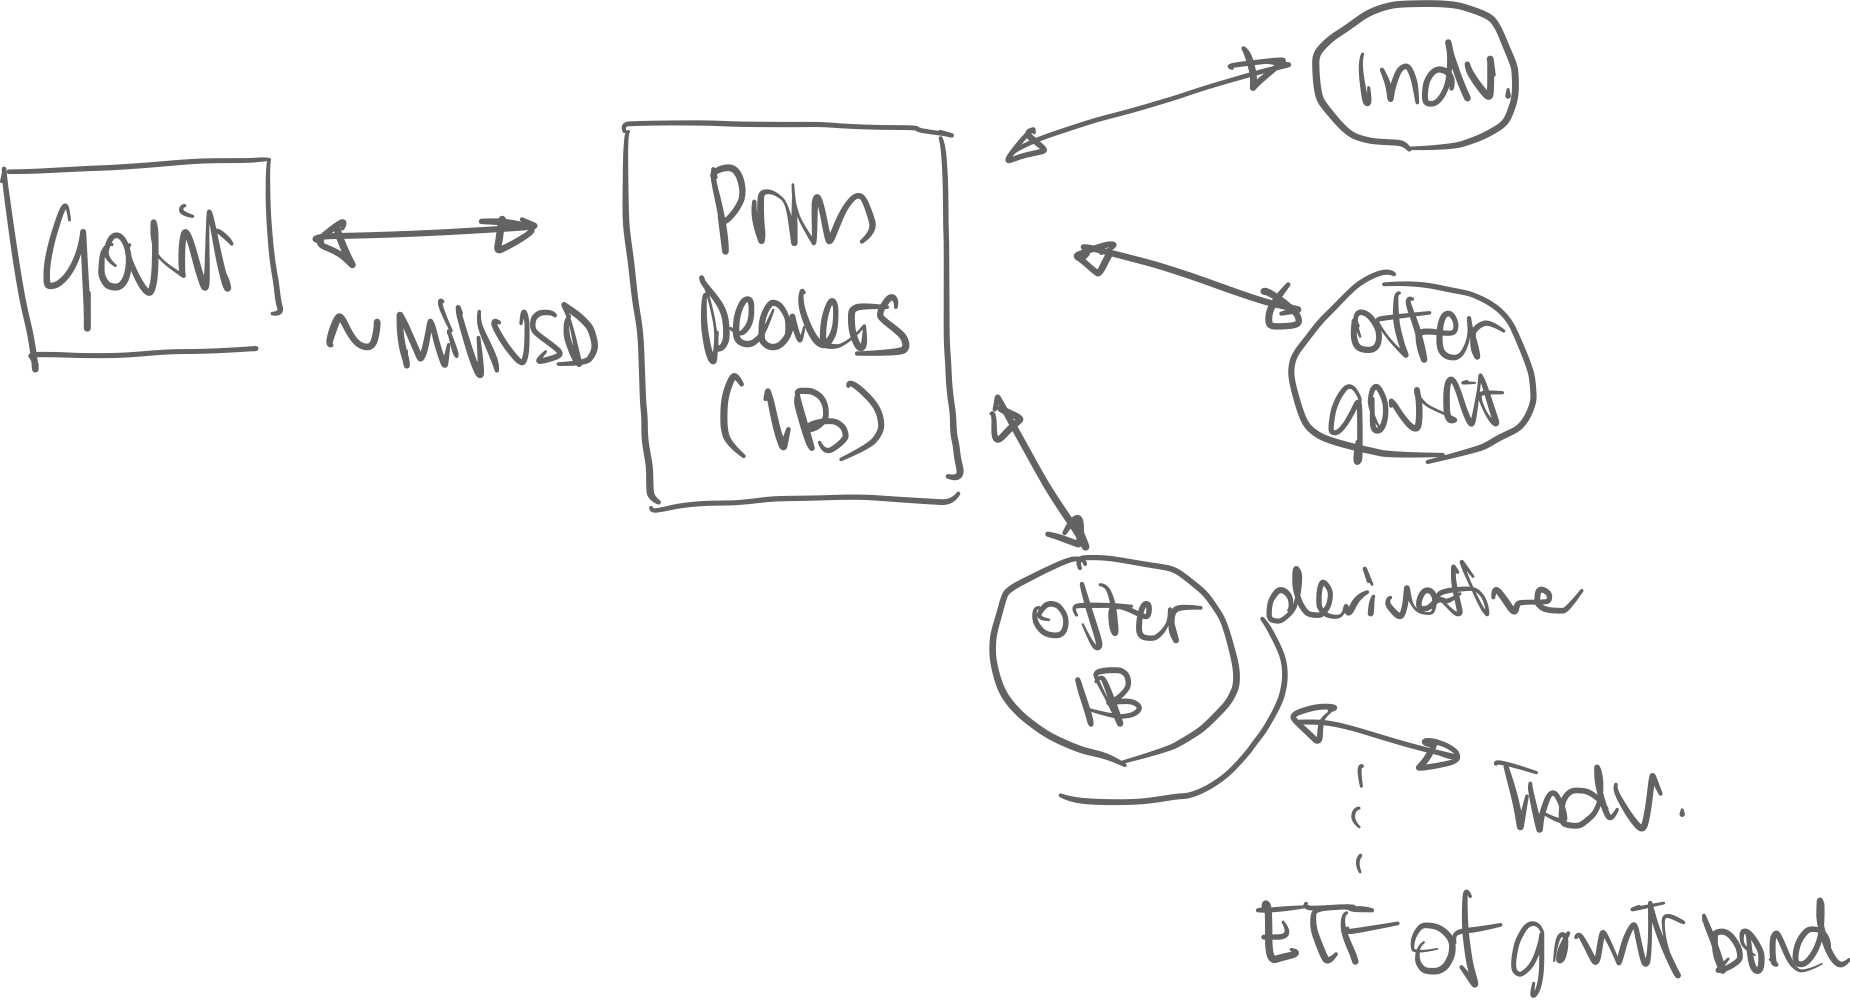 Gov't
~ Mill USD
Prim
Dealers
(IB)
Indv.
other
gov't
other
IB
derivative
Indv.
ETF of gov't bond